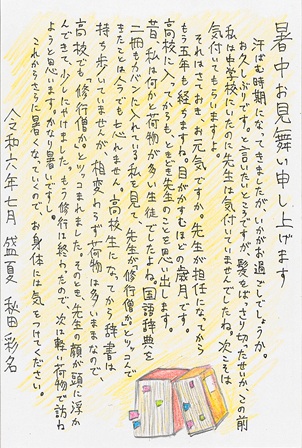 暑中お見舞い申し上げます
汗ばむ時期になってきましたが、いかがお過ごしでしょうか。
お久しぶりです。と言いたいところですが、髪をばっさり切ったせいか、この前
私は中学校にいたのに先生は気付いていませんでしたね。次こそは
気付いてもらいますよ。
それはさておき、お元気ですか。先生が担任になってから
もう五年も経ちますね。目がかすむほどの歳月です。
高校に入ってからも、ときどき先生のことを思い出します。
昔、私は何かと荷物が多い生徒でしたよね。国語辞典を
二冊もカバンに入れている私を見て、先生が「修行僧か。」とツッコんで
きたことは今でも忘れません。高校生になってから辞書は
持ち歩いていませんが、相変わらず荷物は多いままなので、
高校でも「修行僧か。」とツッコまれました。そのとき、先生の顔が頭に浮か
んできて、少しにやけました。もう修行は終わったので、次は軽い荷物で訪ね
ようと思います。かなり暑いですし。
これからさらに暑くなっていくので、お身体には気をつけてください。
令和六年七月 盛夏 秋田彩名